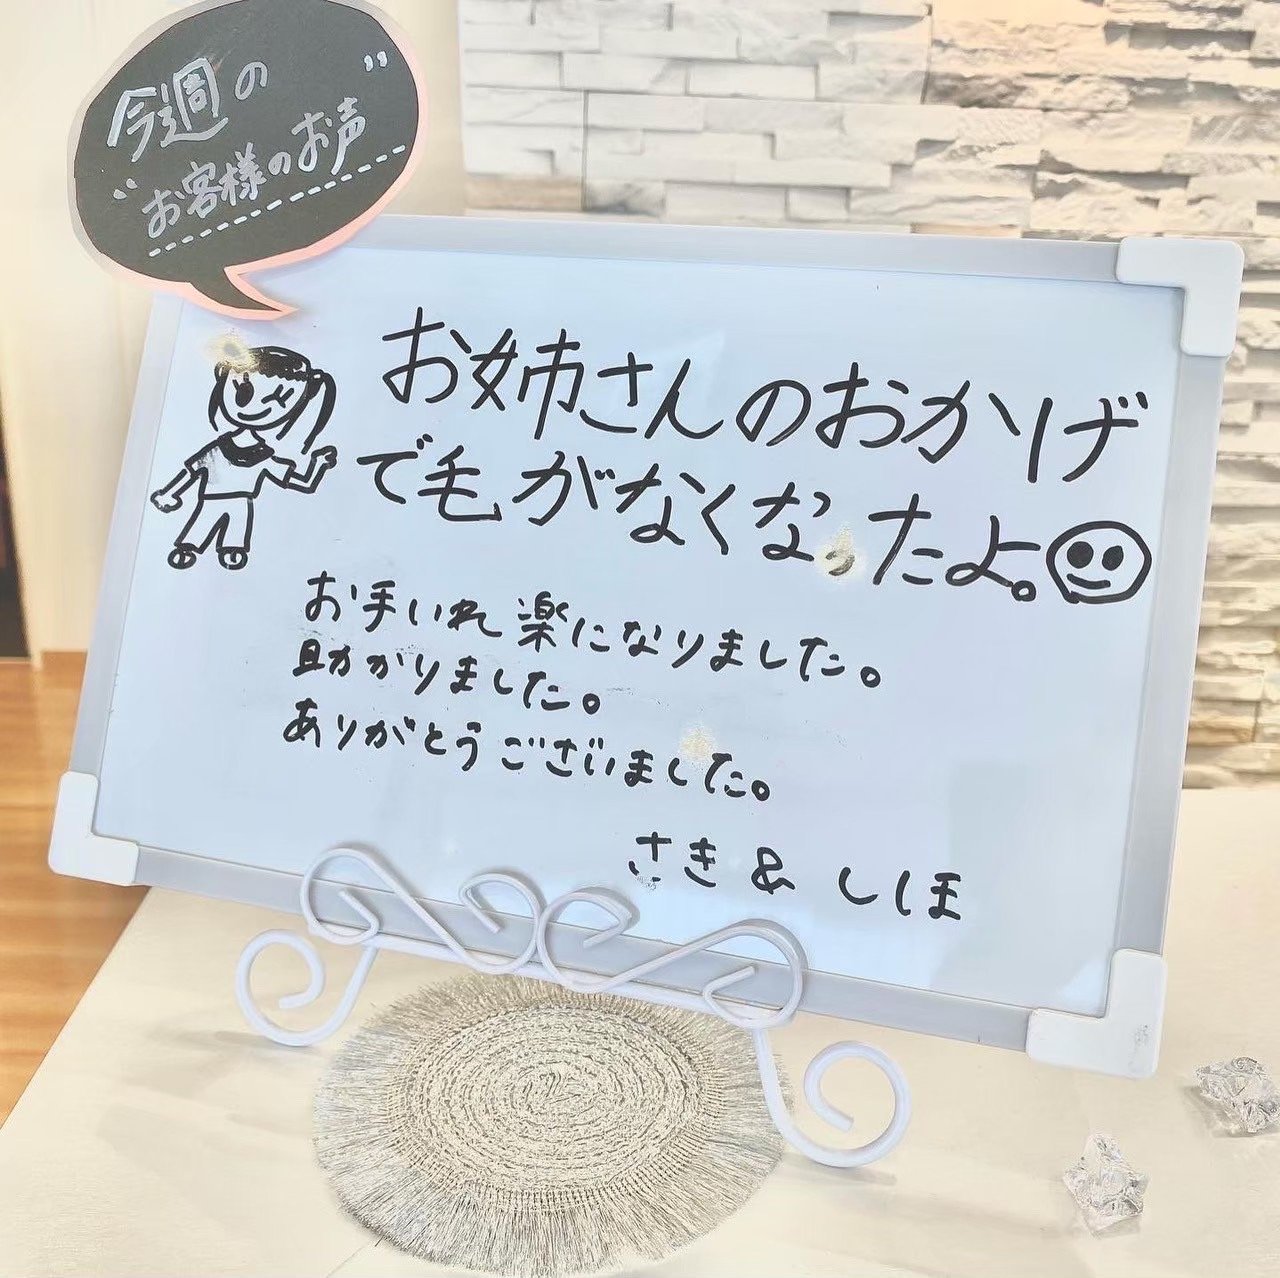 今週の
"お客様のお声"
お姉さんのおかげ
で毛がなくなったよ。
お手いれ楽になりました。
助かりました。
ありがとうございました。
さき&しほ